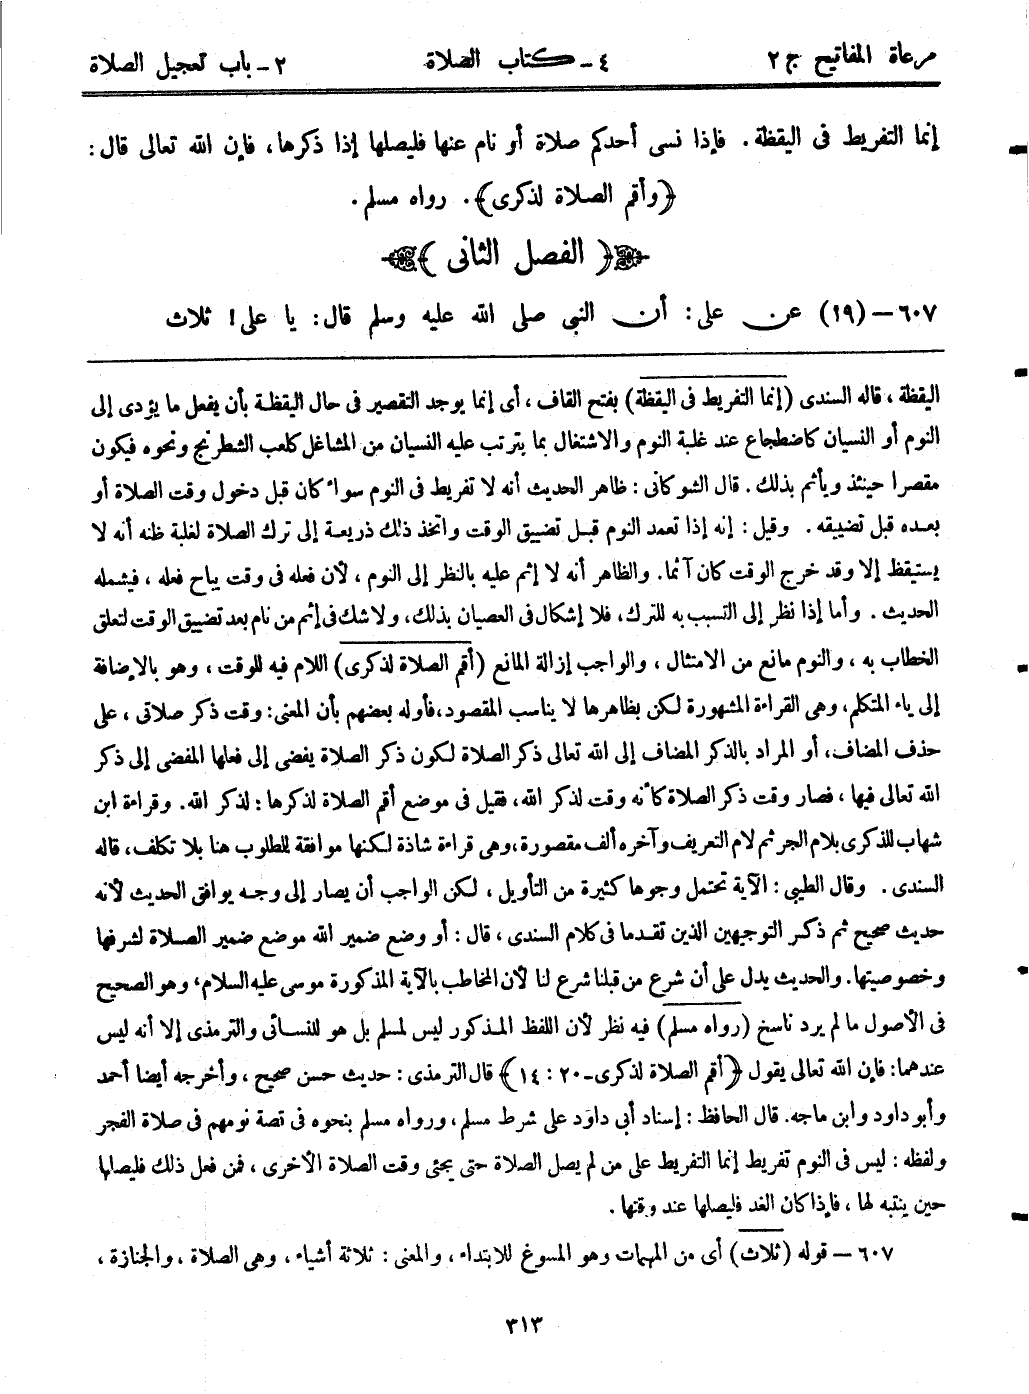 مرعاة المفاتيح ج ٢ ٤ - كتاب الصلاة ٢ - باب تعجيل الصلاة
إنما التفريط فى اليقظة. فإذا نسى أحدكم صلاة أو نام عنها فليصلها إذا ذكرها، فإن الله تعالى قال:
﴿وأقم الصلاة لذكرى﴾. رواه مسلم.
﴿ الفصل الثانى ﴾
٦٠٧ - (١٩) عن على: أن النبى صلى الله عليه وسلم قال: يا على! ثلاث
اليقظة، قاله السندى (إنما التفريط فى اليقظة) بفتح القاف، أى إنما يوجد التقصير فى حال اليقظة بأن يفعل ما يؤدى إلى
النوم أو النسيان كاضطجاع عند غلبة النوم والاشتغال بما يترتب عليه النسيان من المشاغل كلعب الشطرنج ونحوه فيكون
مقصرا حينئذ ويأثم بذلك. قال الشوكانى: ظاهر الحديث أنه لا تفريط فى النوم سواء كان قبل دخول وقت الصلاة أو
بعده قبل تضييقه. وقيل: إنه إذا تعمد النوم قبل تضييق الوقت واتخذ ذلك ذريعة إلى ترك الصلاة لغلبة ظنه أنه لا
يستيقظ إلا وقد خرج الوقت كان آثما. والظاهر أنه لا إثم عليه بالنظر إلى النوم، لأن فعله فى وقت يباح فعله، فيشمله
الحديث. وأما إذا نظر إلى التسبب به للترك، فلا إشكال فى العصيان بذلك، ولا شك فى إثم من نام بعد تضييق الوقت لتعلق
الخطاب به، والنوم مانع من الامتثال، والواجب إزالة المانع (أقم الصلاة لذكرى) اللام فيه للوقت، وهو بالإضافة
إلى ياء المتكلم، وهى القراءة المشهورة لكن بظاهرها لا يناسب المقصود، فأوله بعضهم بأن المعنى: وقت ذكر صلاتى، على
حذف المضاف، أو المراد بالذكر المضاف إلى الله تعالى ذكر الصلاة لكون ذكر الصلاة يفضى إلى فعلها المفضى إلى ذكر
الله تعالى فيها، فصار وقت ذكر الصلاة كأنه وقت لذكر الله، فقيل فى موضع أقم الصلاة لذكرها: لذكر الله. وقراءة ابن
شهاب للذكرى بلام الجر ثم لام التعريف وآخره ألف مقصورة، وهى قراءة شاذة لكنها موافقة للطلوب هنا بلا تكلف، قاله
السندى. وقال الطيبى: الآية تحتمل وجوها كثيرة من التأويل، لكن الواجب أن يصار إلى وجه يوافق الحديث لأنه
حديث صحيح ثم ذكر التوجيهين الذين تقدما فى كلام السندى، قال: أو وضع ضمير الله موضع ضمير الصلاة لشرفها
وخصوصيتها. والحديث يدل على أن شرع من قبلنا شرع لنا لأن المخاطب بالآية المذكورة موسى عليه السلام، وهو الصحيح
فى الأصول ما لم يرد ناسخ (رواه مسلم) فيه نظر لأن اللفظ المذكور ليس لمسلم بل هو للنسائى والترمذى إلا أنه ليس
عندهما: فإن الله تعالى يقول ﴿أقم الصلاة لذكرى - ٢٠ : ١٤﴾ قال الترمذى: حديث حسن صحيح، وأخرجه أيضا أحمد
وأبو داود وابن ماجه. قال الحافظ: إسناد أبى داود على شرط مسلم، ورواه مسلم بنحوه فى قصة نومهم فى صلاة الفجر
ولفظه: ليس فى النوم تفريط إنما التفريط على من لم يصل الصلاة حتى يجئى وقت الصلاة الأخرى، فمن فعل ذلك فليصلها
حين ينتبه لها، فإذا كان الغد فليصلها عند وقتها.
٦٠٧ - قوله (ثلاث) أى من المهمات وهو المسوغ للابتداء، والمعنى: ثلاثة أشياء، وهى الصلاة، والجنازة،
٣١٣